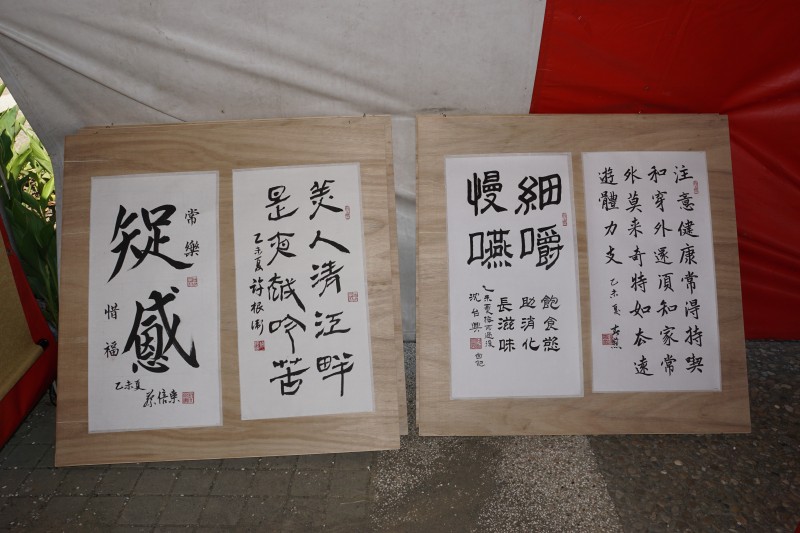 注意健康常得持喫
和穿外還須知家常
外莫来奇特如太遠
遊體力支
乙未夏
細嚼
慢嚥
飽食慾
助消化
長滋味
乙未夏
沈台興
美人清江畔
是夜越吟苦
乙未夏許根
知足
常樂
感恩
惜福
乙未夏